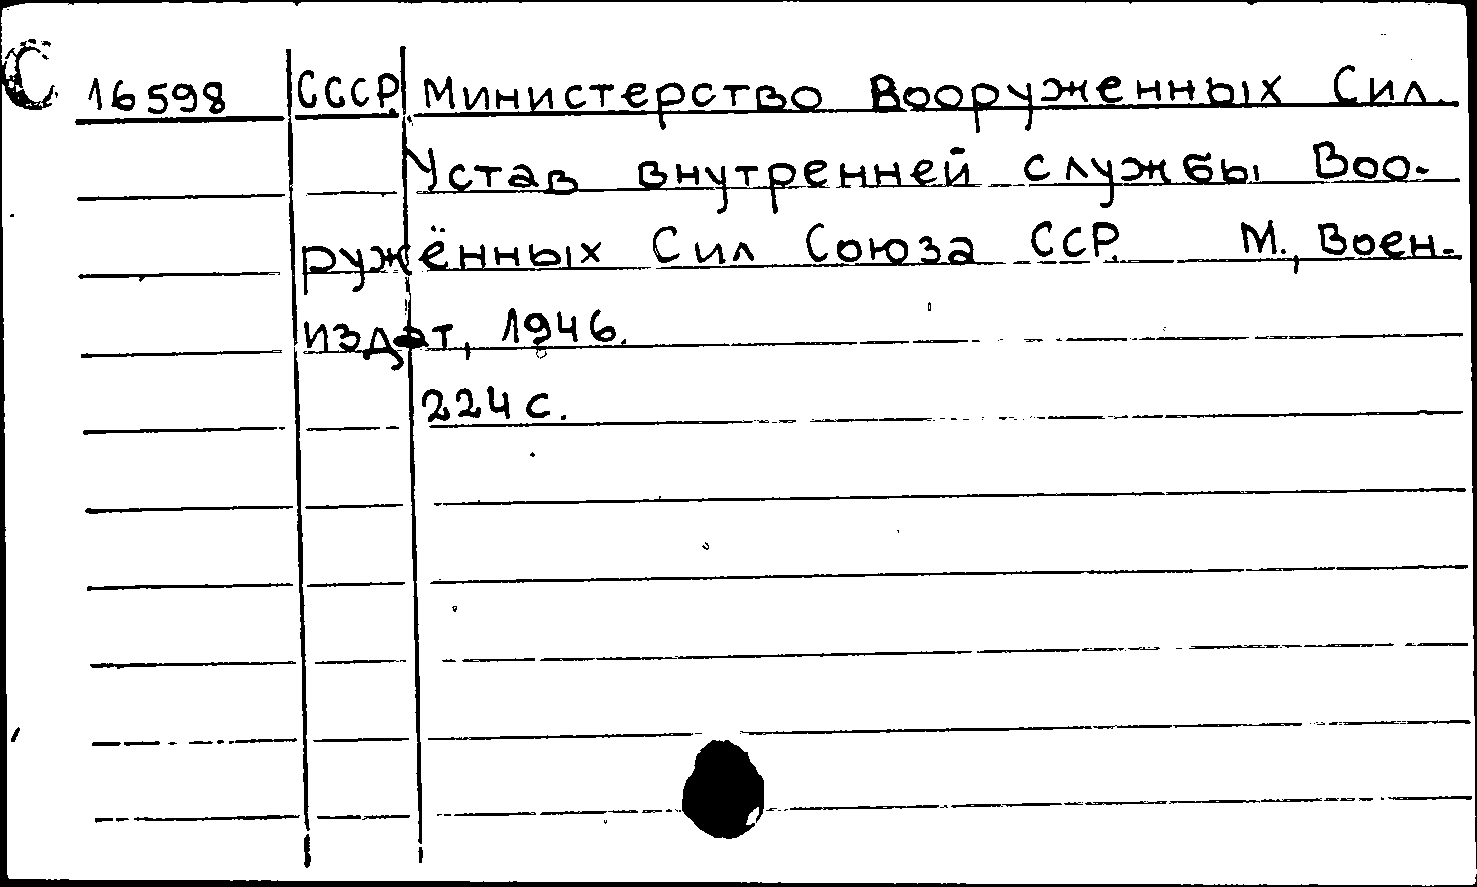 С 16598 СССР. Министерство Вооруженных Сил.
Устав внутренней службы Воо-
ружённых Сил Союза ССР. М., Воен-
издат, 1946.
224 с.